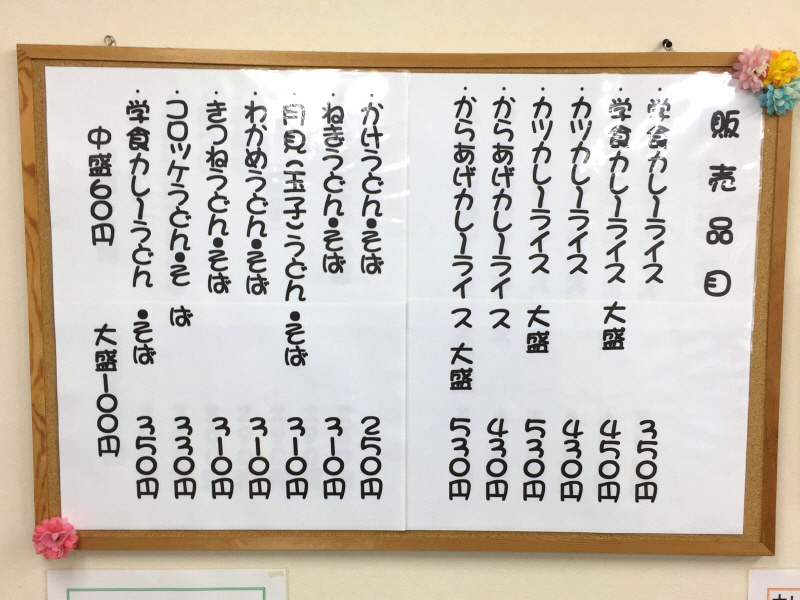 販売品目
・学食カレーライス 350円
・学食カレーライス 大盛 450円
・カツカレーライス 430円
・カツカレーライス 大盛 530円
・からあげカレーライス 430円
・からあげカレーライス 大盛 530円
・かけうどん・そば 250円
・ねぎうどん・そば 310円
・月見(玉子)うどん・そば 310円
・わかめうどん・そば 310円
・きつねうどん・そば 310円
・コロッケうどん・そば 330円
・学食カレーうどん・そば 350円
中盛60円 大盛100円